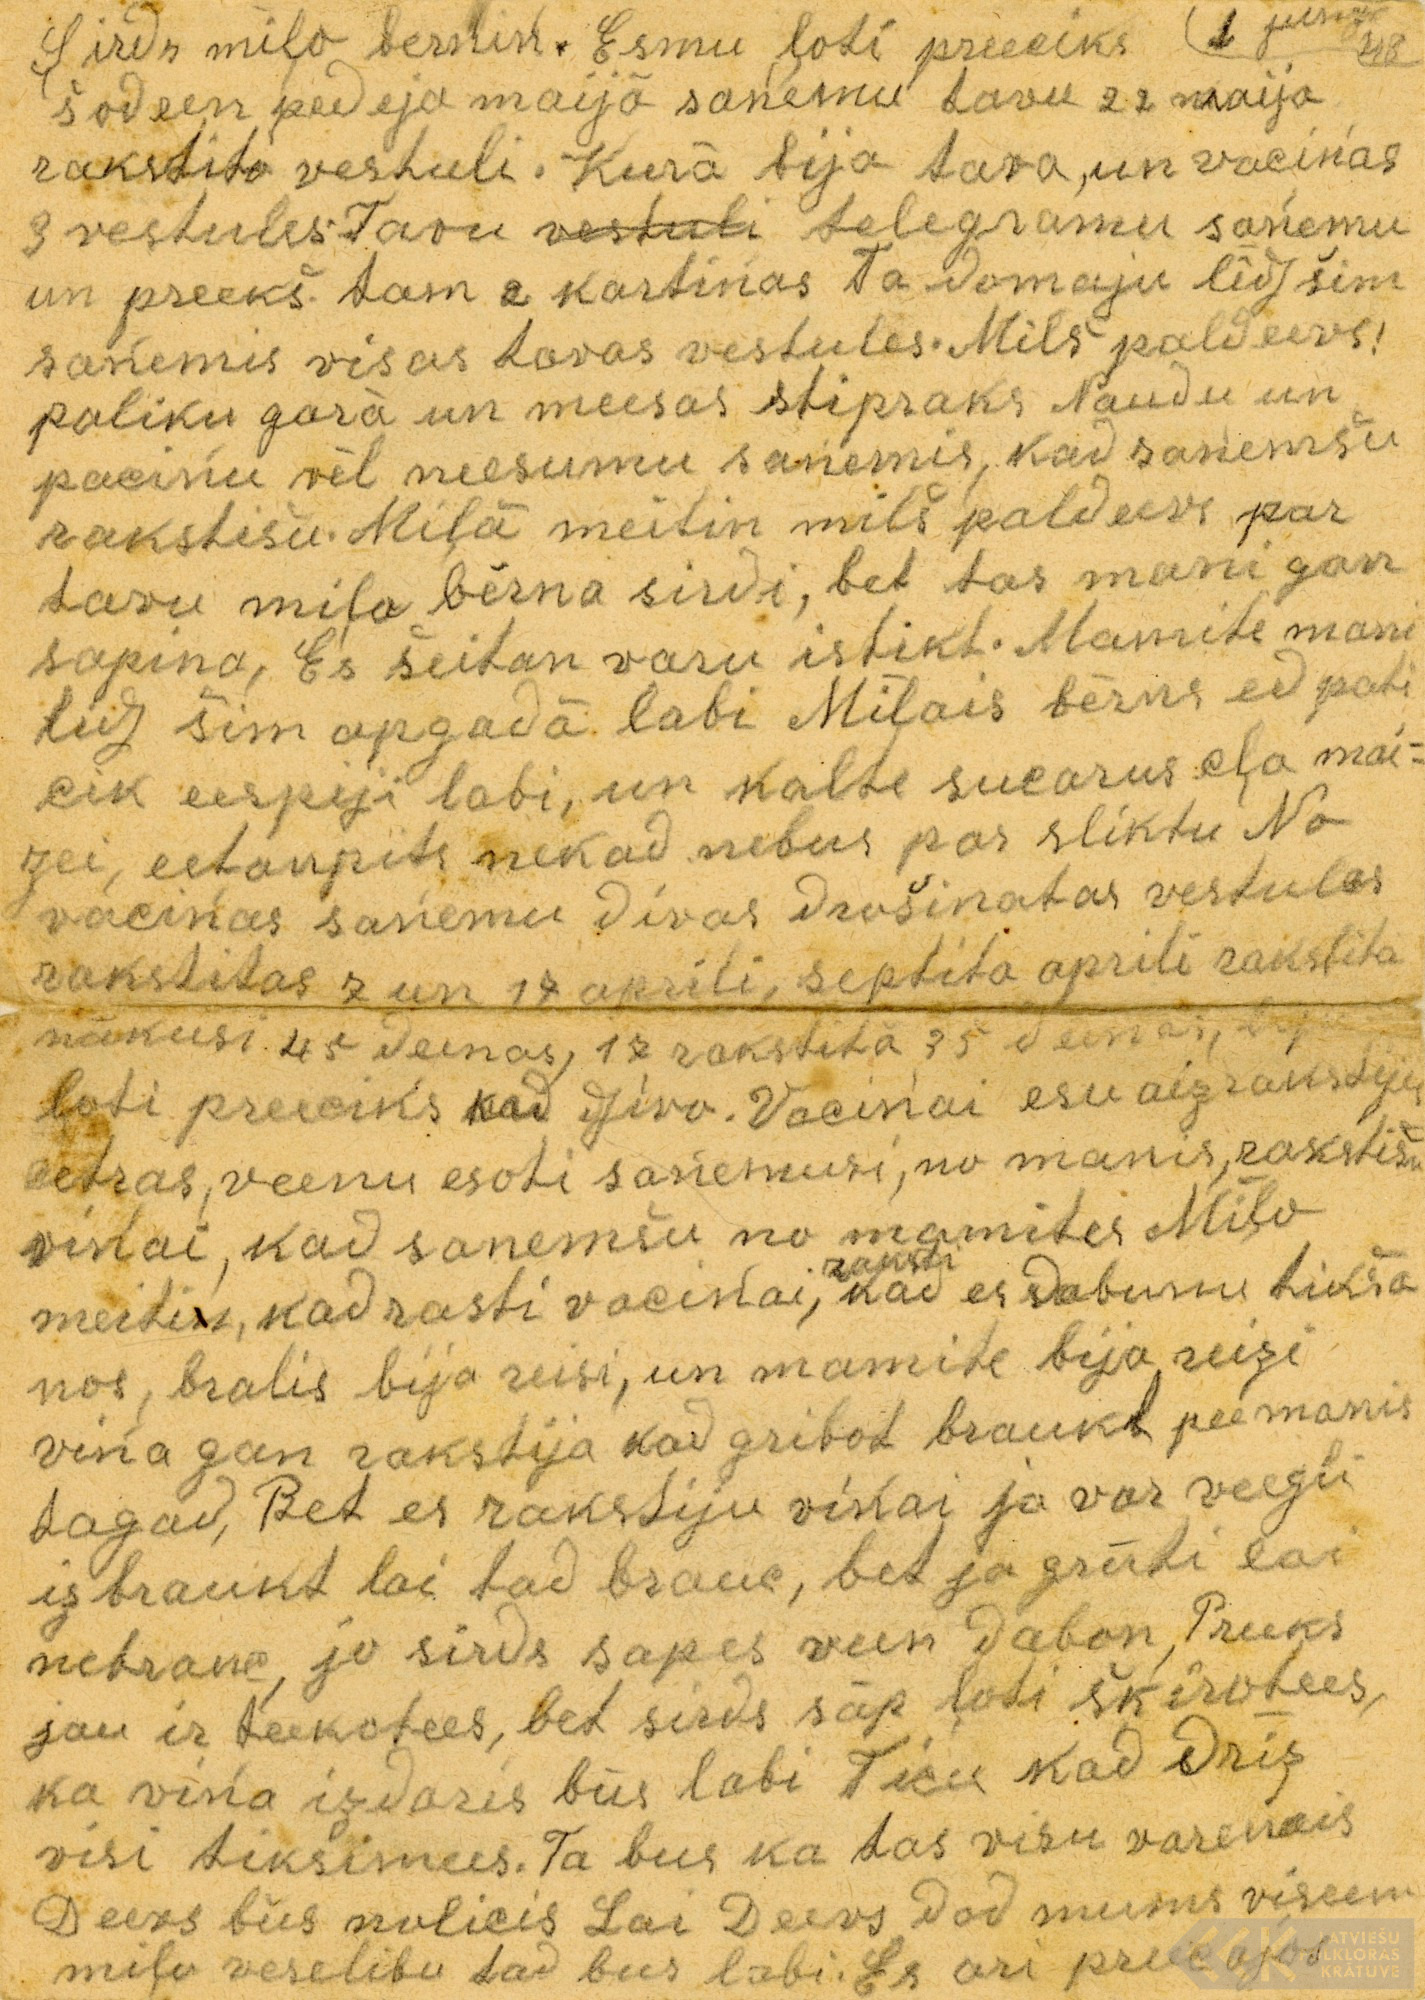 1 junijs
48
Sirds miļo berniņ. Esmu loti preeciks
šodeen pedeja maijā saņemu tavu 22 maija
rakstito vestuli. Kurā bija tava, un vaciņas
3 vestules. Tavu vestuli telegramu saņemu
un preekš tam 2 kartiņas Ta domaju līdz šim
saņemis visas tavas vestules. Milš paldeevs!
paliku garā un meesas stipraks Naudu un
paciņu vēl neesumu saņemis, kad saņemšu
rakstišu. Miļā meitin milš paldeevs par
tavu miļo bērna sirdi, bet tas mani gan
sapina, Es šeitan varu istikt. Mamite mani
lidz šim apgadā labi Miļais bērns ed pati
cik eespiji labi, un kalte sucarus eļa mai=
zei, eetaupits nekad nebus par sliktu No
vaciņas saņemu divas drošinatas vestules
rakstitas 7 un 17 aprili, septito aprili rakstita
nākusi 45 deenas, 17 rakstitā 35 deenas,
loti preeciks kad dzivo. Vaciņai esu aizrakstijis
cetras, veenu esoti saņemusi, no manis, rakstišu
viņai, kad saņemšu no mamites Miļo
meitiņ, kad rasti vaciņai, raksti kad es dabunu tikša
nos, bralis bija reisi, un mamite bija reizi
viņa gan rakstija kad gribot braukt pee manis
tagad, Bet es rakstiju viņai ja var veegli
izbraukt lai tad brauc, bet ja grūti lai
nebrauc, jo sirds sapes veen dabon, Preeks
jau ir teekotees, bet sirds sāp ļoti šķirotees,
ka viņa izdaris būs labi Ticu kad drīz
visi tiksimees. Ta bus ka tas visu varenais
Deevs būs nolicis Lai Deevs dod mums viseem
miļo veselibu tad bus labi. Es ari preecajos
LATVIEŠU
FOLKLORAS
KRĀTUVE